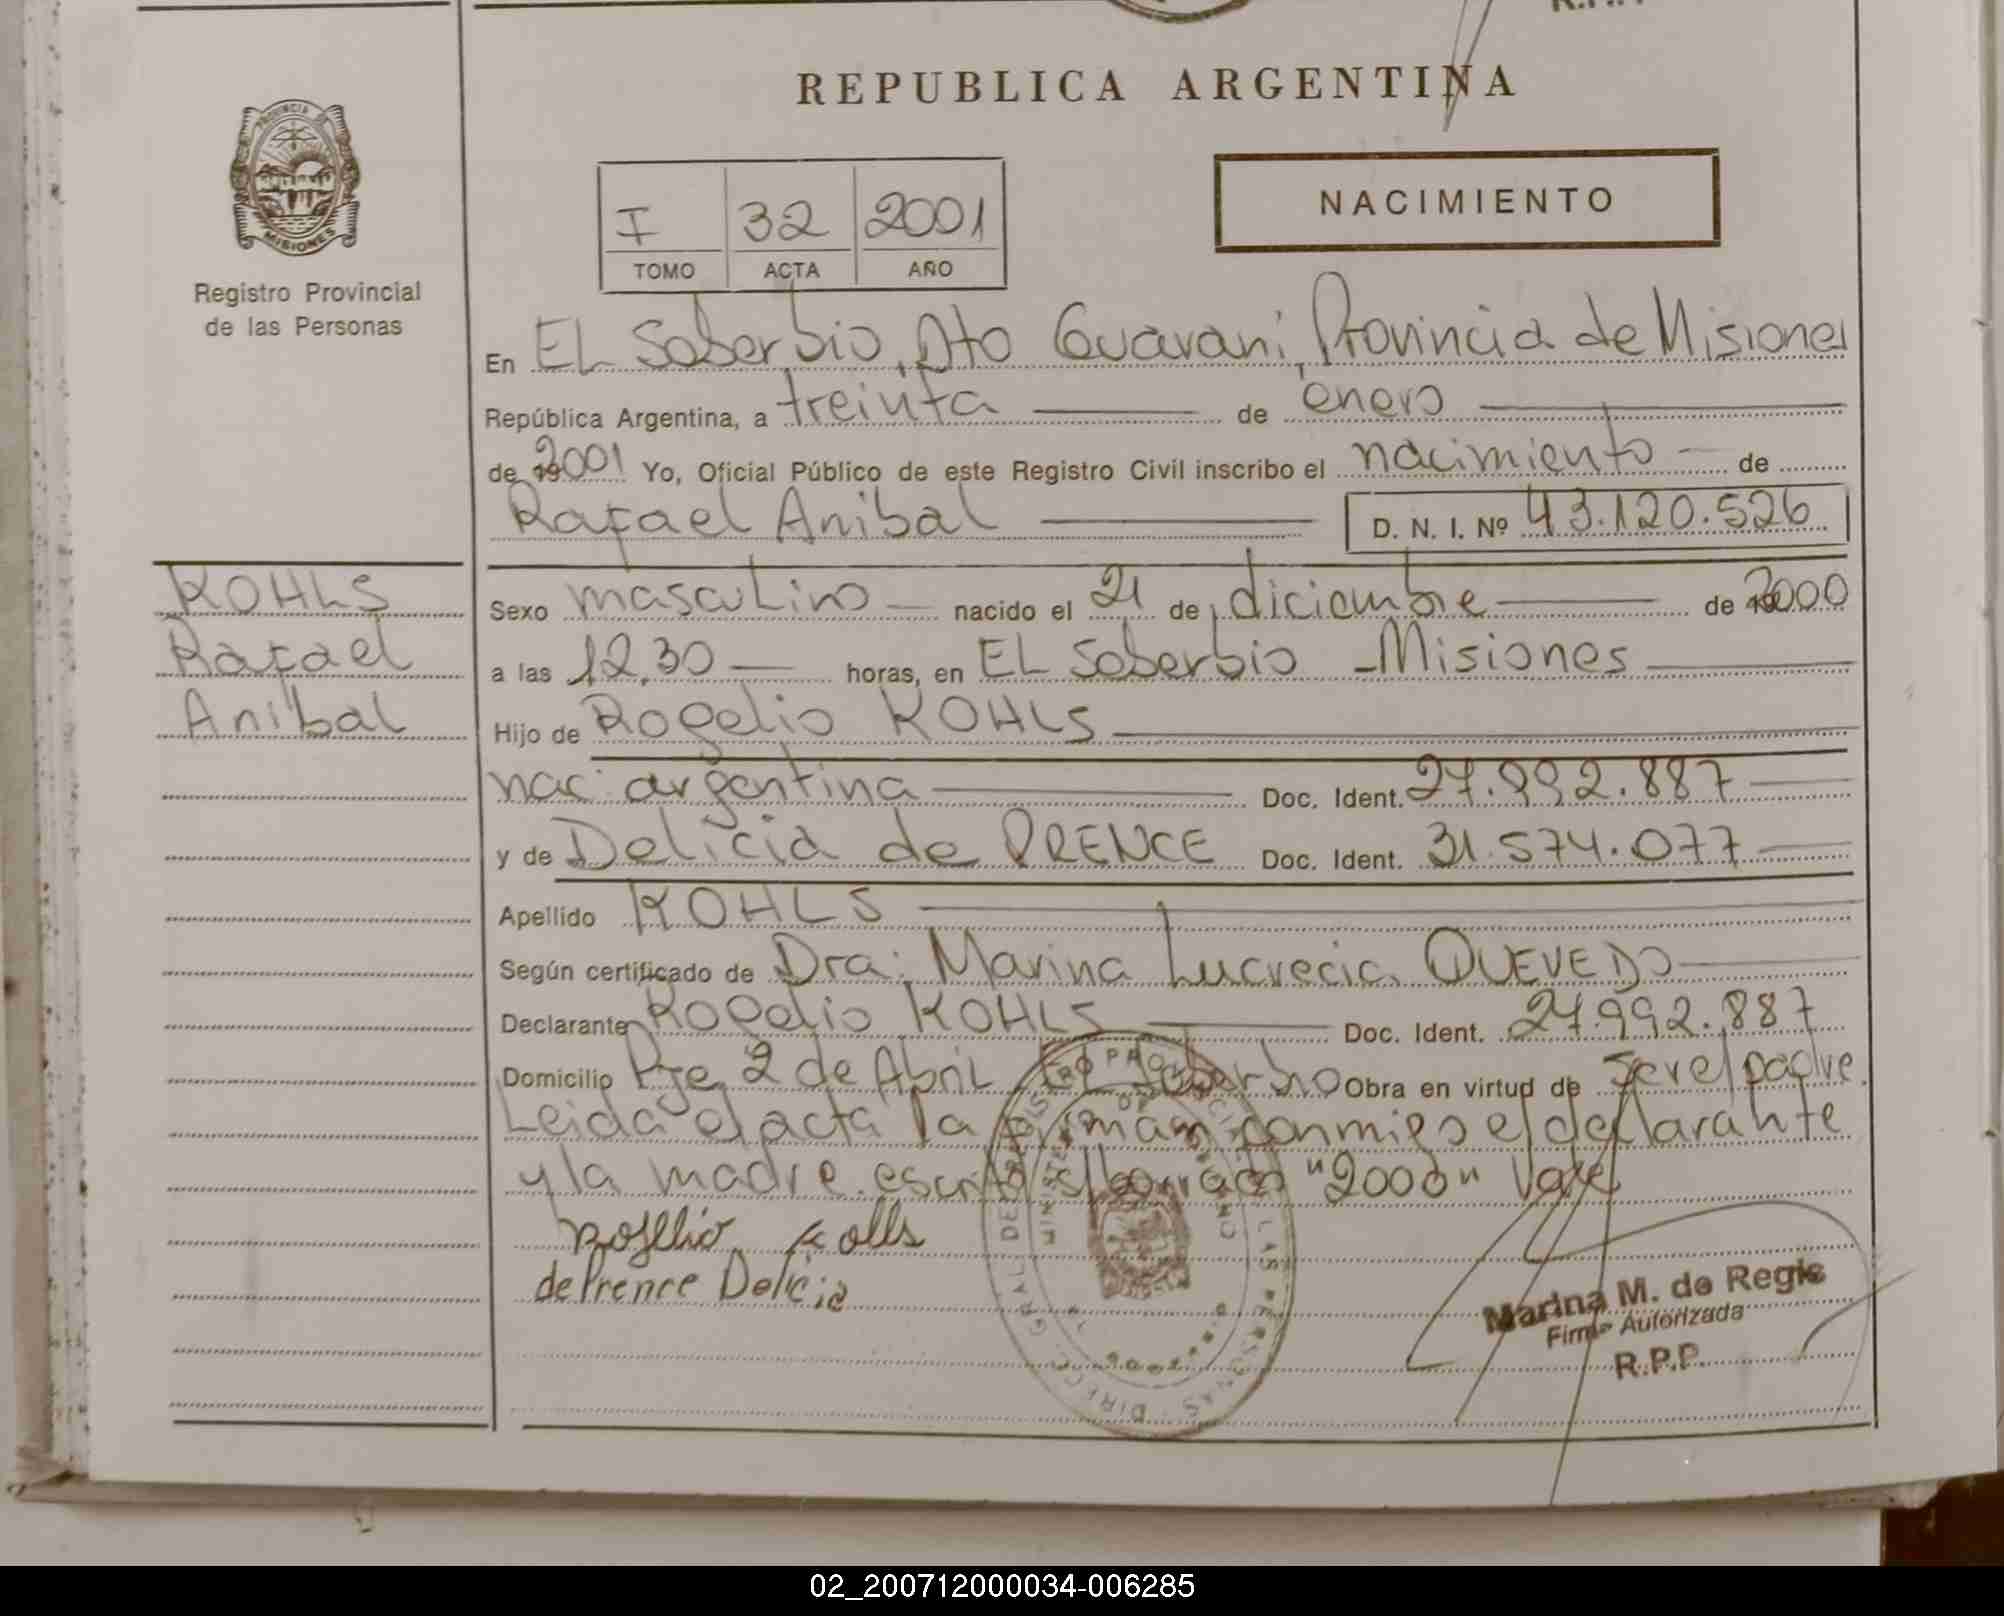 REPUBLICA ARGENTINA
PROVINCIA DE
MISIONES
Registro Provincial
de las Personas
NACIMIENTO
I 32 2001
TOMO ACTA AÑO
En EL Soberbio, Dto Guaraní, Provincia de Misiones
República Argentina, a treinta de enero
de 2001 Yo, Oficial Público de este Registro Civil inscribo el nacimiento de
Rafael Anibal D. N. I. Nº 43.120.526
KOHLS
Rafael
Anibal
Sexo masculino nacido el 21 de diciembre de 2000
a las 12,30 horas, en EL Soberbio - Misiones
Hijo de Rogelio KOHLS
nac. argentina Doc. Ident. 27.992.887
y de Delicia de PRENCE Doc. Ident. 31.574.077
Apellido KOHLS
Según certificado de Dra. Marina Lucrecia QUEVEDO
Declarante Rogelio KOHLS Doc. Ident. 27.992.887
Domicilio Pje 2 de Abril El Soberbio Obra en virtud de ser el padre.
Leida el acta la firman conmigo el declarante
y la madre. escrito s/borrado "2000" Vale
Rogelio Kolls
de Prence Delicia
Marina M. de Regis
Firma Autorizada
R.P.P.
02_200712000034-006285